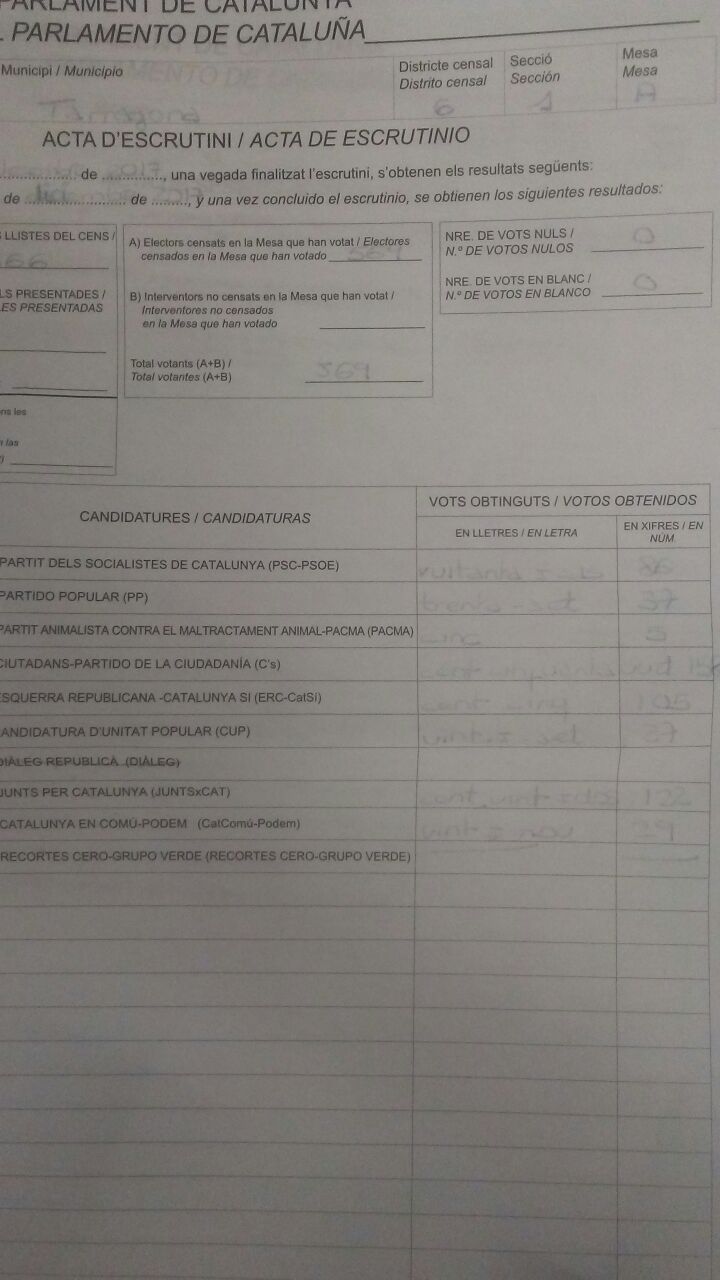 PARLAMENT DE CATALUNYA
PARLAMENTO DE CATALUÑA
Municipi / Municipio
Districte censal
Distrito censal
Secció
Sección
Mesa
Mesa
Tarragona
6
1
A
ACTA D'ESCRUTINI / ACTA DE ESCRUTINIO
de ............., una vegada finalitzat l'escrutini, s'obtenen els resultats següents:
de ........................ de ........, y una vez concluido el escrutinio, se obtienen los siguientes resultados:
LLISTES DEL CENS /
66
LS PRESENTADES /
LES PRESENTADAS
ns les
las
A) Electors censats en la Mesa que han votat / Electores
censados en la Mesa que han votado 569
B) Interventors no censats en la Mesa que han votat /
Interventores no censados
en la Mesa que han votado
Total votants (A+B) /
Total votantes (A+B) 569
NRE. DE VOTS NULS /
N.º DE VOTOS NULOS 0
NRE. DE VOTS EN BLANC /
N.º DE VOTOS EN BLANCO 0
CANDIDATURES / CANDIDATURAS
VOTS OBTINGUTS / VOTOS OBTENIDOS
EN LLETRES / EN LETRA
EN XIFRES / EN NÚM.
PARTIT DELS SOCIALISTES DE CATALUNYA (PSC-PSOE) vuitanta 86
PARTIDO POPULAR (PP) trenta-set 37
PARTIT ANIMALISTA CONTRA EL MALTRACTAMENT ANIMAL-PACMA (PACMA) cinc 5
CIUTADANS-PARTIDO DE LA CIUDADANÍA (C's) cent
ESQUERRA REPUBLICANA -CATALUNYA SI (ERC-CatSí) cent cinq 105
CANDIDATURA D'UNITAT POPULAR (CUP) vint-i-set
DIÀLEG REPUBLICÀ (DIÀLEG)
JUNTS PER CATALUNYA (JUNTSxCAT) cent vint-i-dos 122
CATALUNYA EN COMÚ-PODEM (CatComú-Podem) vint-i-nou 29
RECORTES CERO-GRUPO VERDE (RECORTES CERO-GRUPO VERDE)